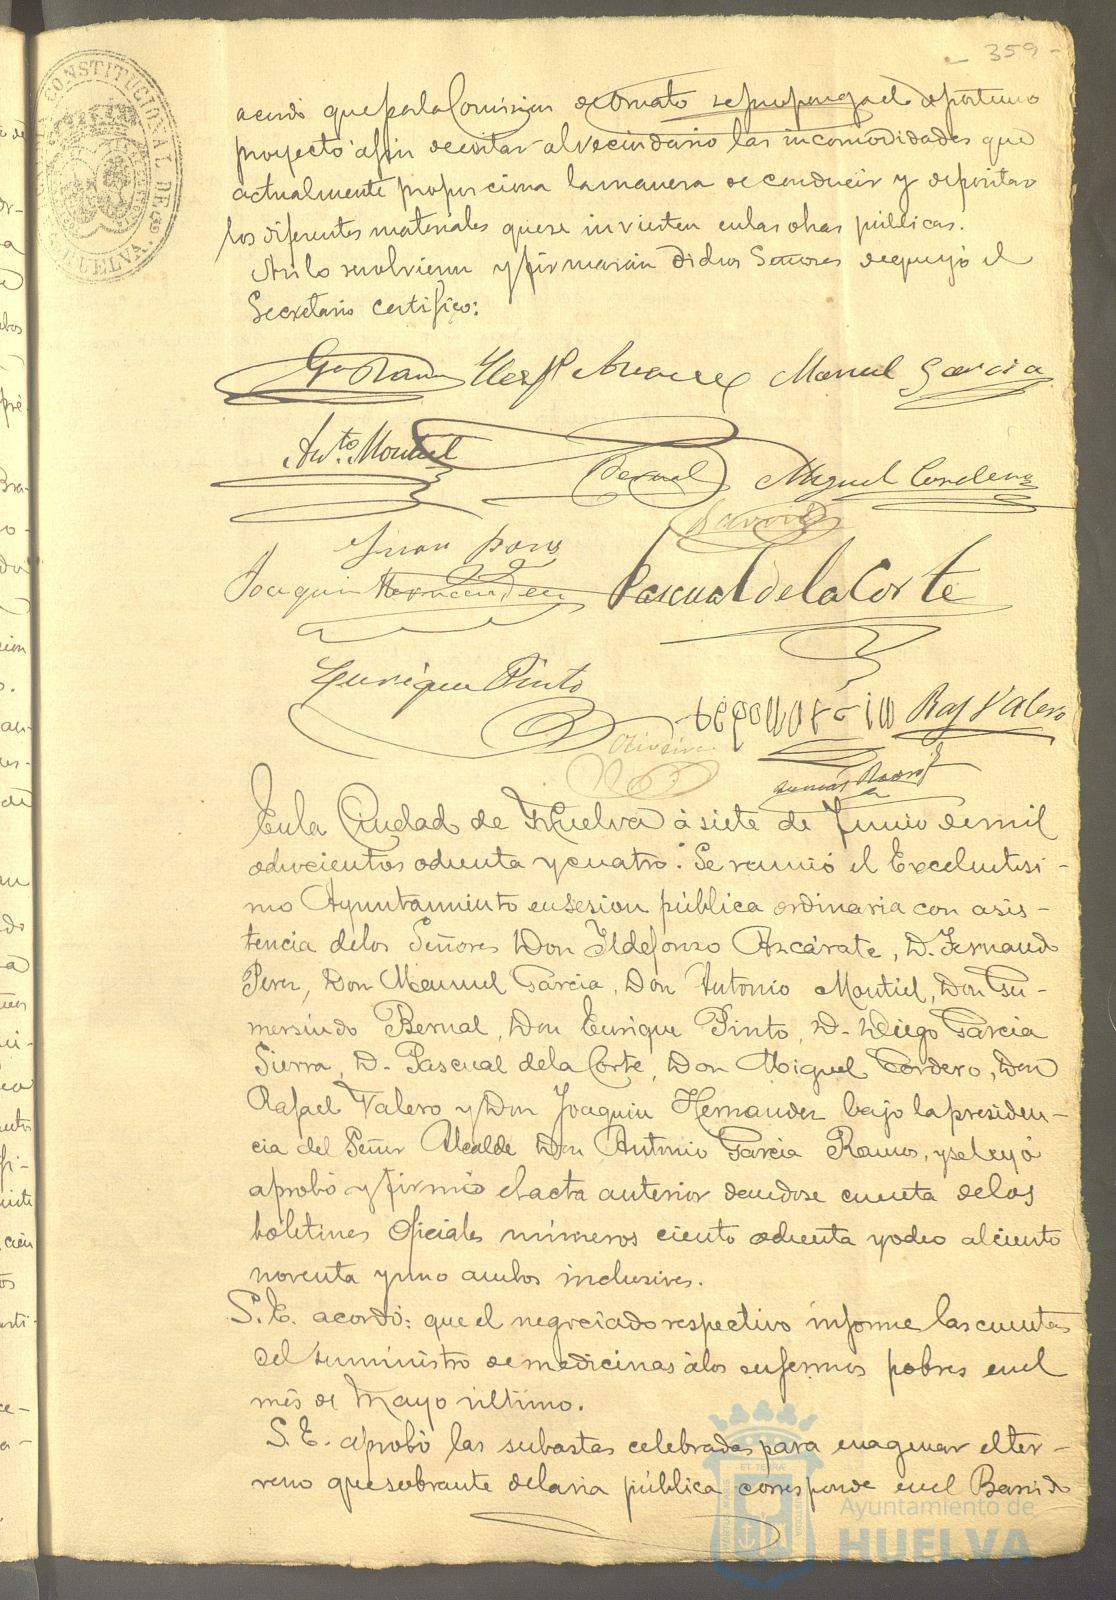 - 359 -
CONSTITUCIONAL DE
HUELVA.
acordó que por la Comision de Ornato se proponga el oportuno
proyecto afin de evitar al vecindario las incomodidades que
actualmente proporciona la manera de conducir y depositar
los diferentes materiales que se invierten en las obras públicas.
Asi lo resolvieron y firmarán dichos Señores de que yó el
Secretario certifico:
Ga Ramos Manuel Garcia
Anto. Montiel
Bernal Miguel Cordero
Juan
Joaquin Hernandez Pascual de la Corte
Enrique Pinto
Raf Valero
Oliveira
En la Ciudad de Huelva á siete de Junio de mil
ochocientos ochenta y cuatro: Se reunió el Excelentisi-
mo Ayuntamiento en sesion pública ordinaria con asis-
tencia de los Señores Don Ildefonso Azcárate, D. Fernando
Perez, Don Manuel Garcia, Don Antonio Montiel, Don Gu-
mersindo Bernal, Don Enrique Pinto, D. Diego Garcia
Sierra, D. Pascual de la Corte, Don Miguel Cordero, Don
Rafael Valero y Don Joaquin Hernandez bajo la presiden-
cia del Señor Alcalde Don Antonio Garcia Ramos, y se leyó
aprobó y firmó el acta anterior dandose cuenta de los
boletines oficiales números ciento ochenta y ocho al ciento
noventa y uno ambos inclusives.
S. E. acordó: que el negociado respectivo informe las cuentas
del suministro de medicinas á los enfermos pobres en el
mes de Mayo último.
S. E. aprobó las subastas celebradas para enagenar el ter-
reno que sobrante de la via pública corresponde en el Barrio
Ayuntamiento de
HUELVA